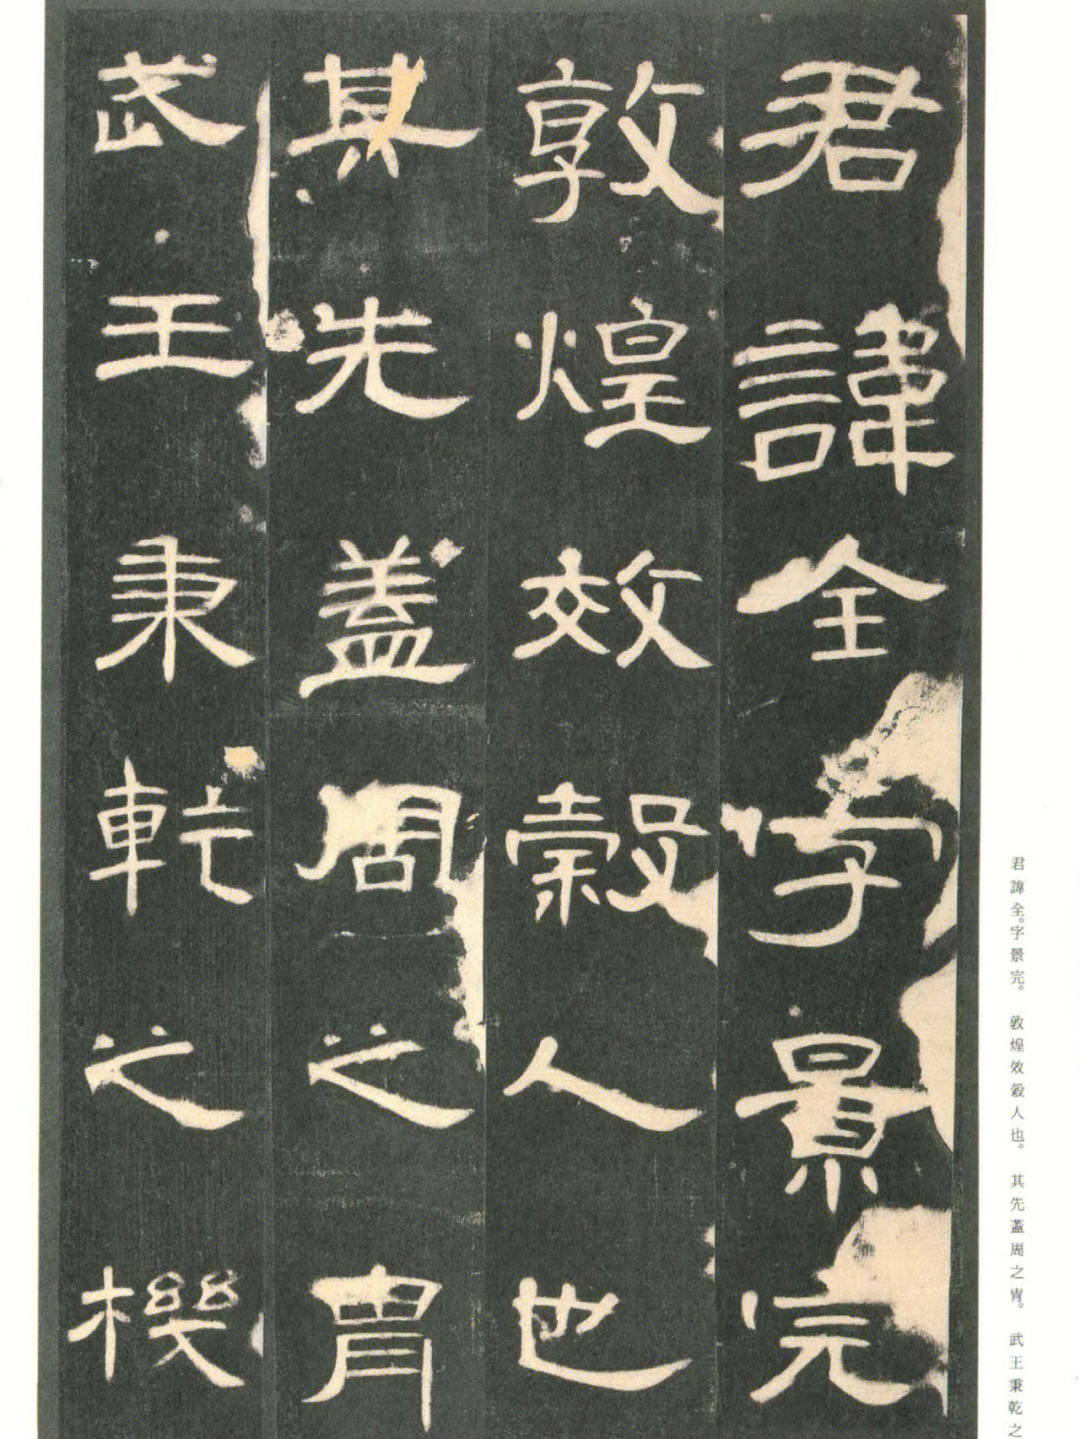 君諱全字景完
敦煌效穀人也
其先蓋周之胄
武王秉乾之機
君諱全。字景完。敦煌效穀人也。其先蓋周之胄。武王秉乾之